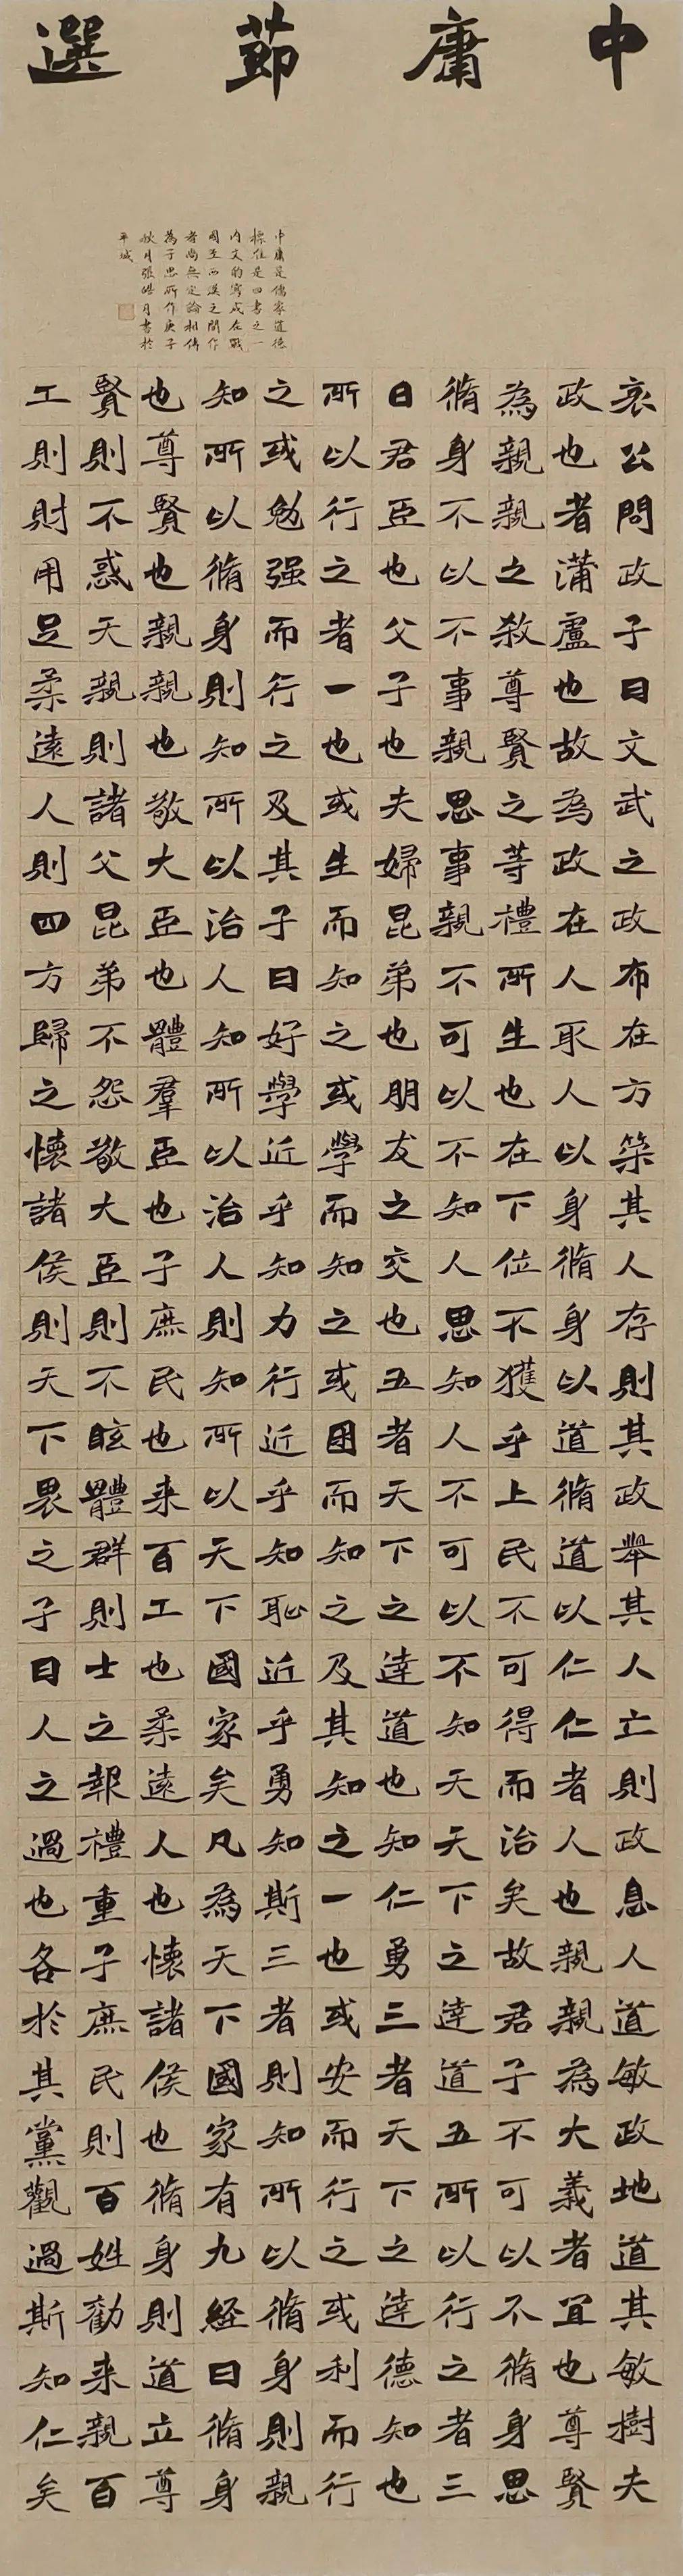 中庸莭選
中庸是儒家道德
標准是四書之一
内文的寫成在戰
國至西漢之間作
者尚無定論相傳
為子思所作庚子
秋月張皓月書於
平城
哀公問政子曰文武之政布在方築其人存則其政舉其人亡則政息人道敏政地道其敏樹夫
政也者蒲盧也故為政在人取人以身脩身以道脩道以仁仁者人也親親為大義者宜也尊賢
為親親之殺尊賢之等禮所生也在下位不獲乎上民不可得而治矣故君子不可以不脩身思
脩身不以不事親思事親不可以不知人思知人不可以不知天天下之達道五所以行之者三
曰君臣也父子也夫婦昆弟也朋友之交也五者天下之達道也知仁勇三者天下之達德知也
所以行之者一也或生而知之或學而知之或困而知之及其知之一也或安而行之或利而行
之或勉强而行之及其子曰好學近乎知力行近乎知恥近乎勇知斯三者則知所以脩身則親
知所以脩身則知所以治人知所以治人則知所以天下國家矣凡為天下國家有九經曰脩身
也尊賢也親親也敬大臣也體羣臣也子庶民也来百工也柔遠人也懷諸侯也脩身則道立尊
賢則不惑天親則諸父昆弟不怨敬大臣則不眩體群則士之報禮重子庶民則百姓勸来親百
工則財用足柔遠人則四方歸之懷諸侯則天下畏之子曰人之過也各於其黨觀過斯知仁矣